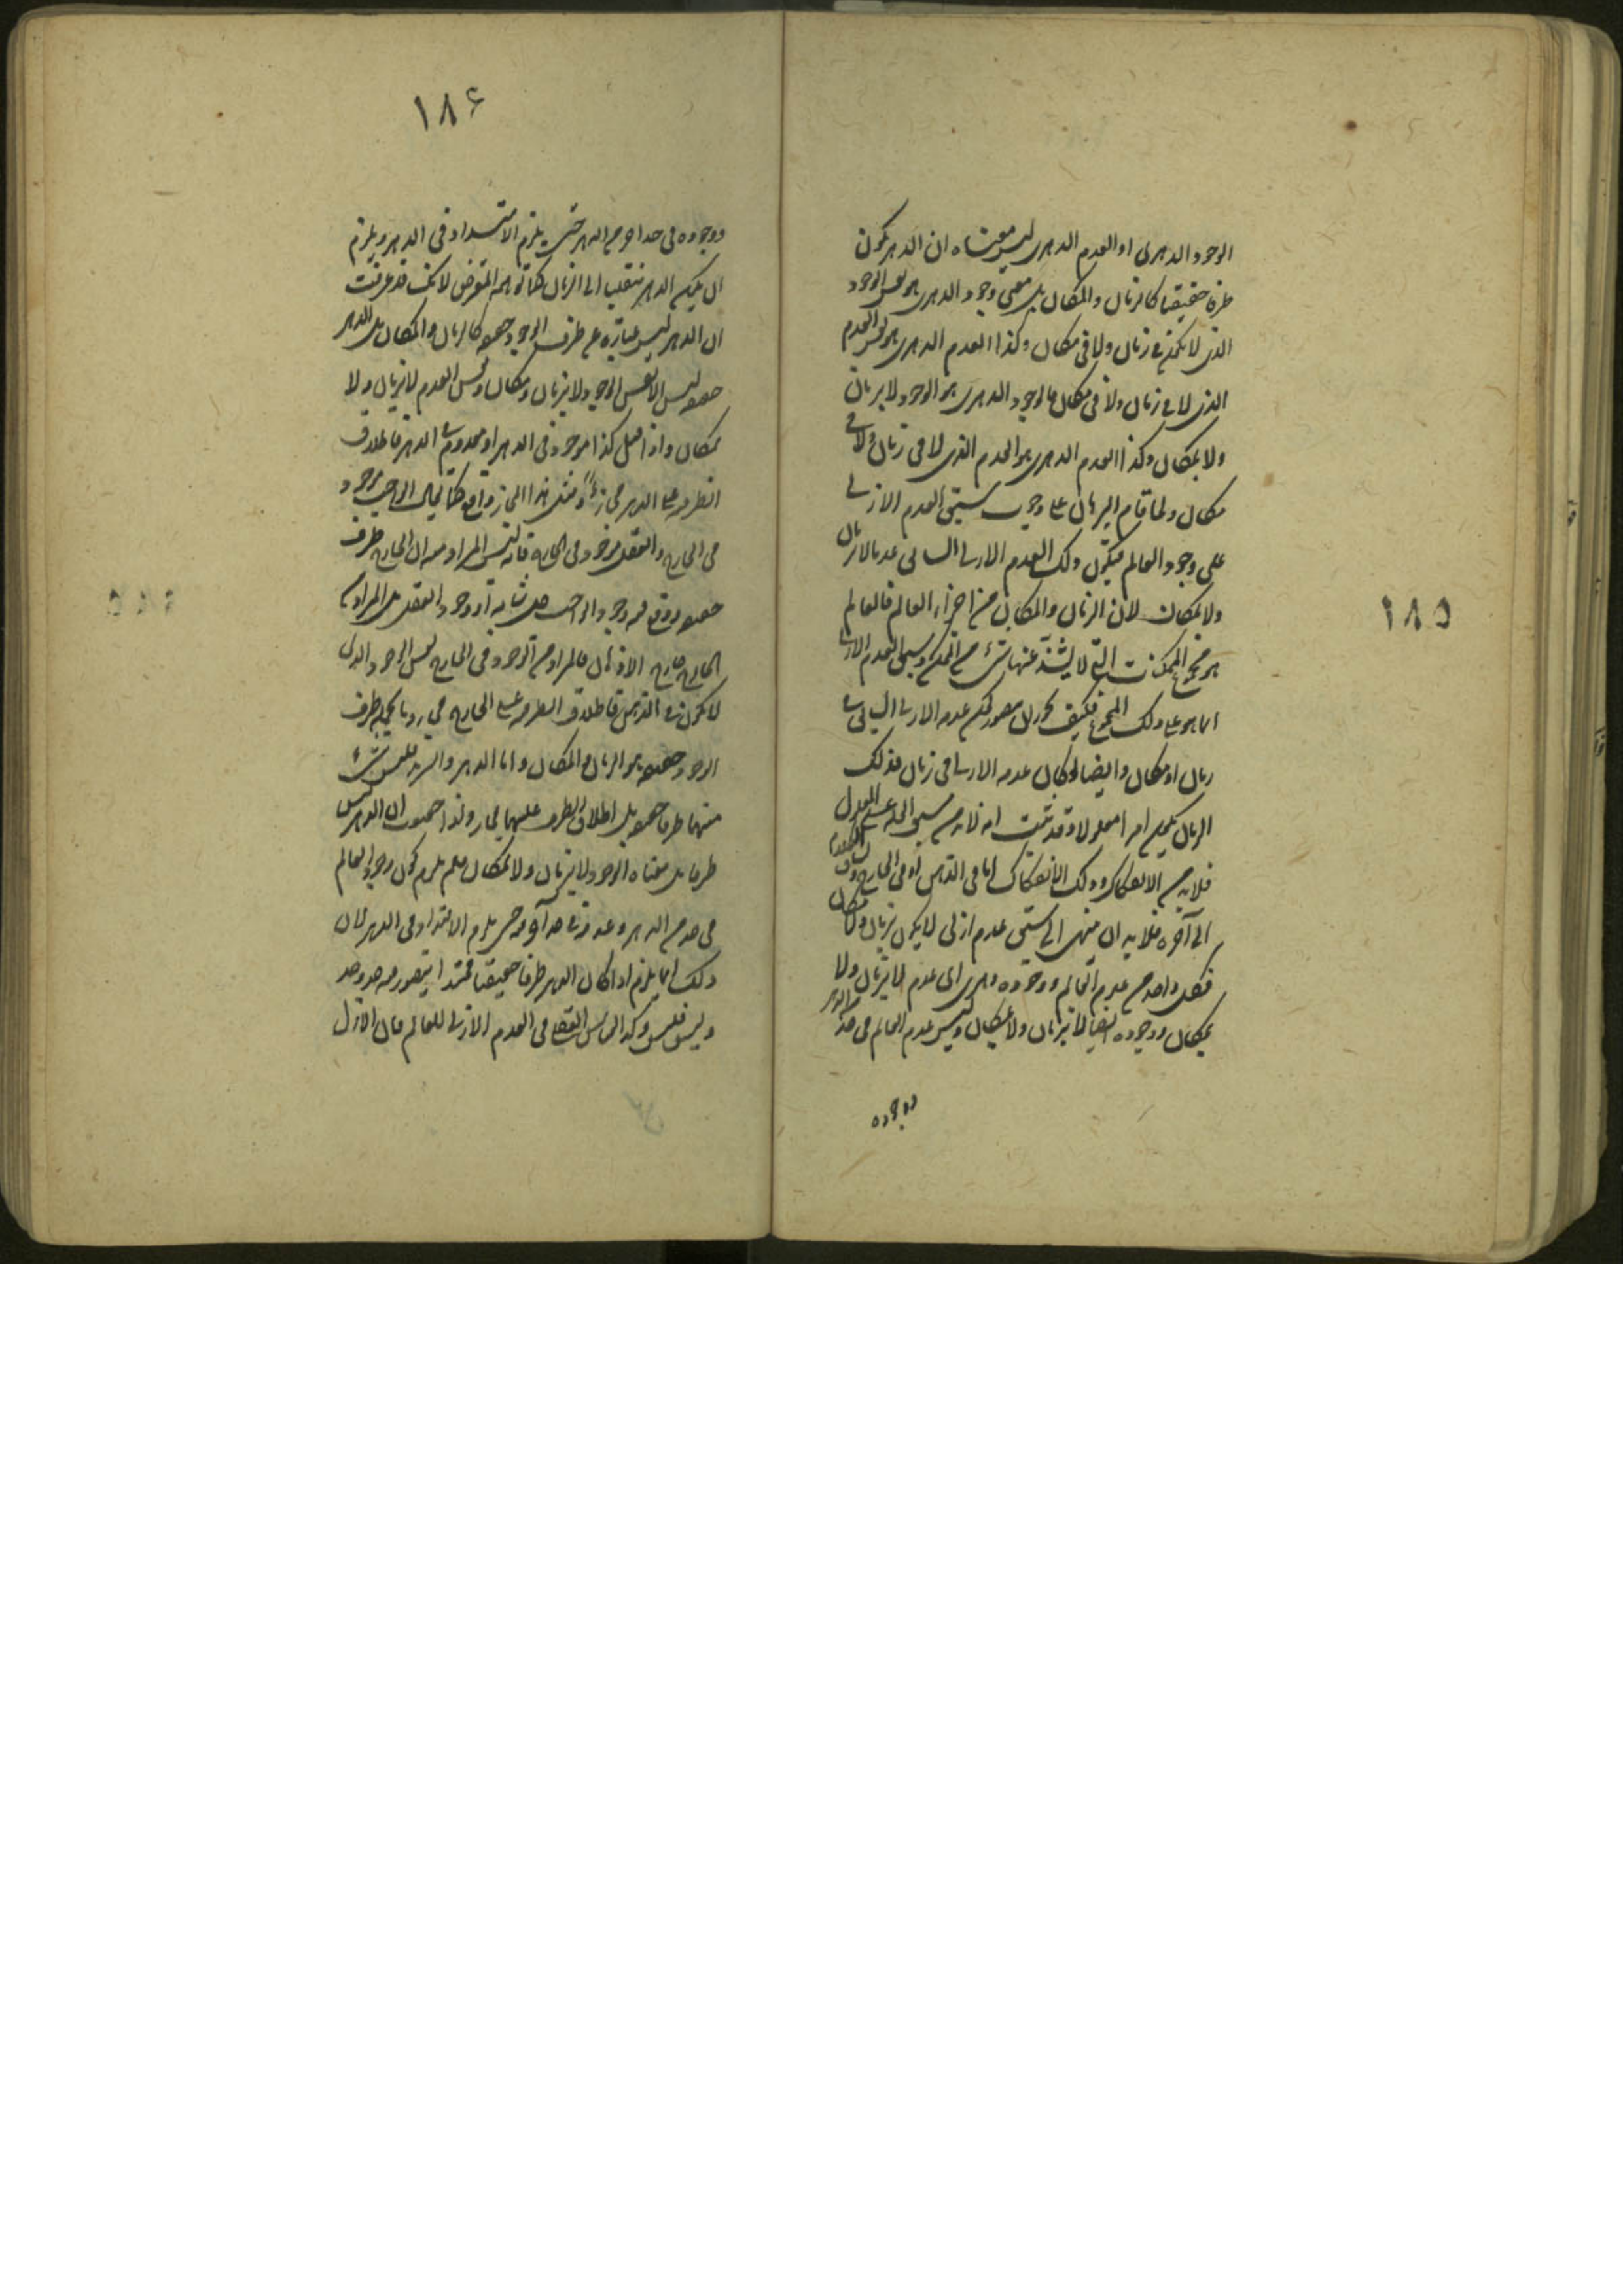 ١٨٥
الوجود الدهرى او العدم الدهرى ليس معناه ان الدهر يكون
ظرفا حقيقيا كالزمان والمكان بل معنى وجود الدهرى هو نفس الوجود
الذى لا يكون فى زمان ولا فى مكان وكذا العدم الدهرى هو نفس العدم
الذى لا فى زمان ولا فى مكان فالوجود الدهرى هو الوجود لا بزمان
ولا بمكان وكذا العدم الدهرى هو العدم الذى لا فى زمان ولا فى
مكان ولما قام البرهان على وجوب سبق العدم الازلى
على وجود العالم فيكون ذلك العدم الازلى السابق عدما لا بزمان
ولا بمكان لان الزمان والمكان من اجزاء العالم فالعالم
هو مجموع الممكنات التى لا يشذ عنها شىء من الممكن وسبق العدم الازلى
انما هو على ذلك المجموع فكيف يجوز ان يتصور كون عدمه الازلى السابق فى
زمان او مكان وايضا لو كان عدمه الازلى فى زمان فذلك
الزمان يكون امرا معلولا وقد ثبت انه لابد من سبق العلة على المعلول
فلابد من الانفكاك وذلك الانفكاك اما فى الذهن او فى الخارج
الى آخره فلابد ان ينتهى الى سبق عدم ازلى لا يكون بزمان ولا مكان
فكل واحد من عدم العالم ووجوده دهرى اى عدم لا بزمان ولا
بمكان ووجوده ايضا لا بزمان ولا بمكان وليس عدم العالم فى حد من الدهر
ووجوده
١٨۶
ووجوده فى حد آخر من الدهر حتى يلزم الامتداد فى الدهر ويلزم
ان يكون الدهر منقلب الى الزمان كما توهمه المعترض لانك قد عرفت
ان الدهر ليس عبارة عن ظرف الوجود حقيقة كالزمان والمكان بل الدهر
حقيقة ليس الا نفس الوجود لا بزمان ومكان ونفس العدم لا بزمان ولا
بمكان واذا قيل كذا موجود فى الدهر او معدوم فى الدهر فاطلاق
الظرف على الدهر مجازى ومثل هذا المجاز واقع كما يقال الواجب موجود
فى الخارج والعقل موجود فى الخارج فانه ليس المراد منه ان الخارج ظرف
حقيقة وقع فيه وجود الواجب جل شانه او وجود العقل بل المراد من
الخارج خارج الاذهان فالمراد من الوجود فى الخارج نفس الوجود الذى
لا يكون فى الذهن فاطلاق الظرف على الخارج مجاز وما يكون ظرف
الوجود حقيقة هو الزمان والمكان واما الدهر والسرمد فليس شىء
منهما ظرفا حقيقة بل اطلاق الظرف عليهما مجاز ولذا ان الدهر ليس
ظرفا بل معناه الوجود لا بزمان ولا بمكان فلم يلزم كون وجود العالم
فى حد من الدهر وعدمه فى حد آخر منه حتى يلزم الامتداد فى الدهر لان
ذلك انما يلزم اذا كان الدهر ظرفا حقيقيا ممتدا يتصور فيه حد وحد
وليس فليس وكذا العدم الازلى للعالم فان الازل